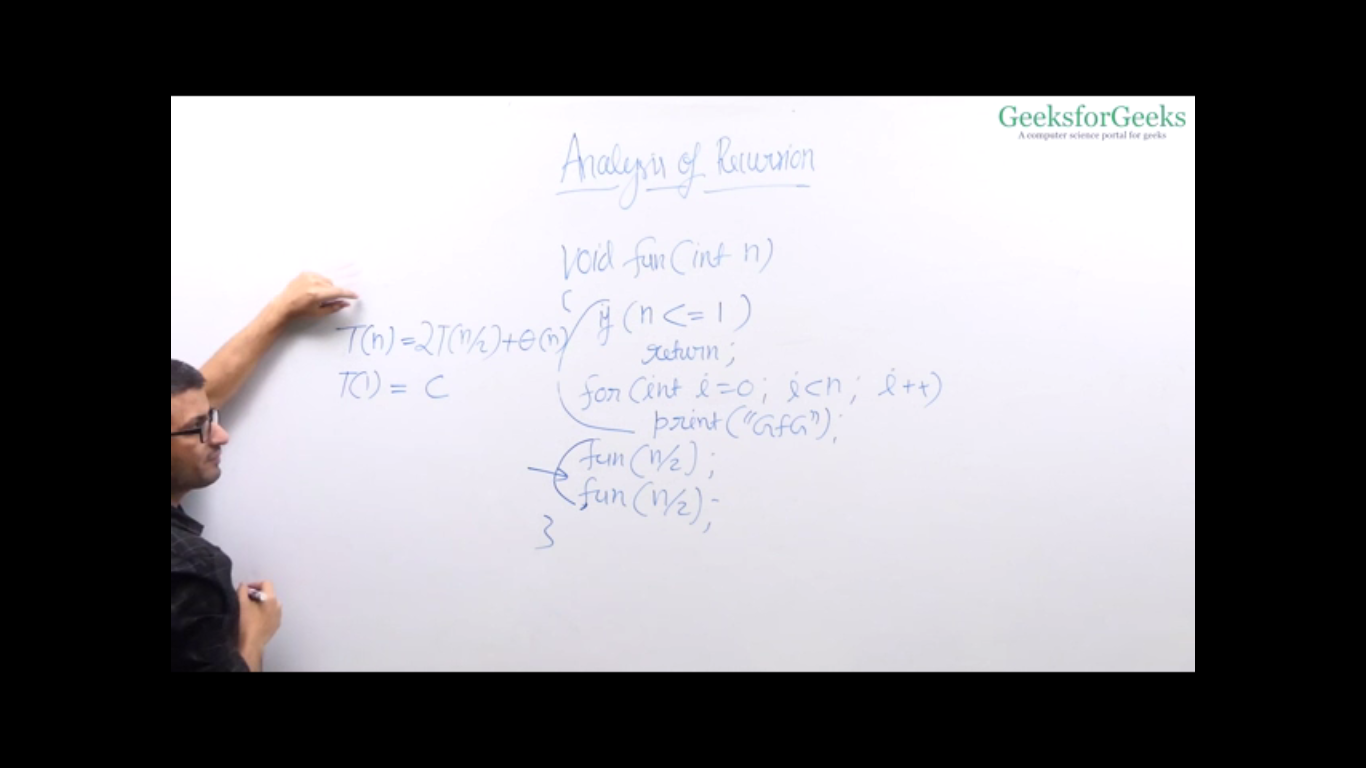 GeeksforGeeks
A computer science portal for geeks
Analysis of Recursion
void fun(int n)
{
if (n <= 1)
return;
T(n) = 2T(n/2) + θ(n)
T(1) = C
for(int i=0; i<n; i++)
print("GfG");
fun(n/2);
fun(n/2);
}